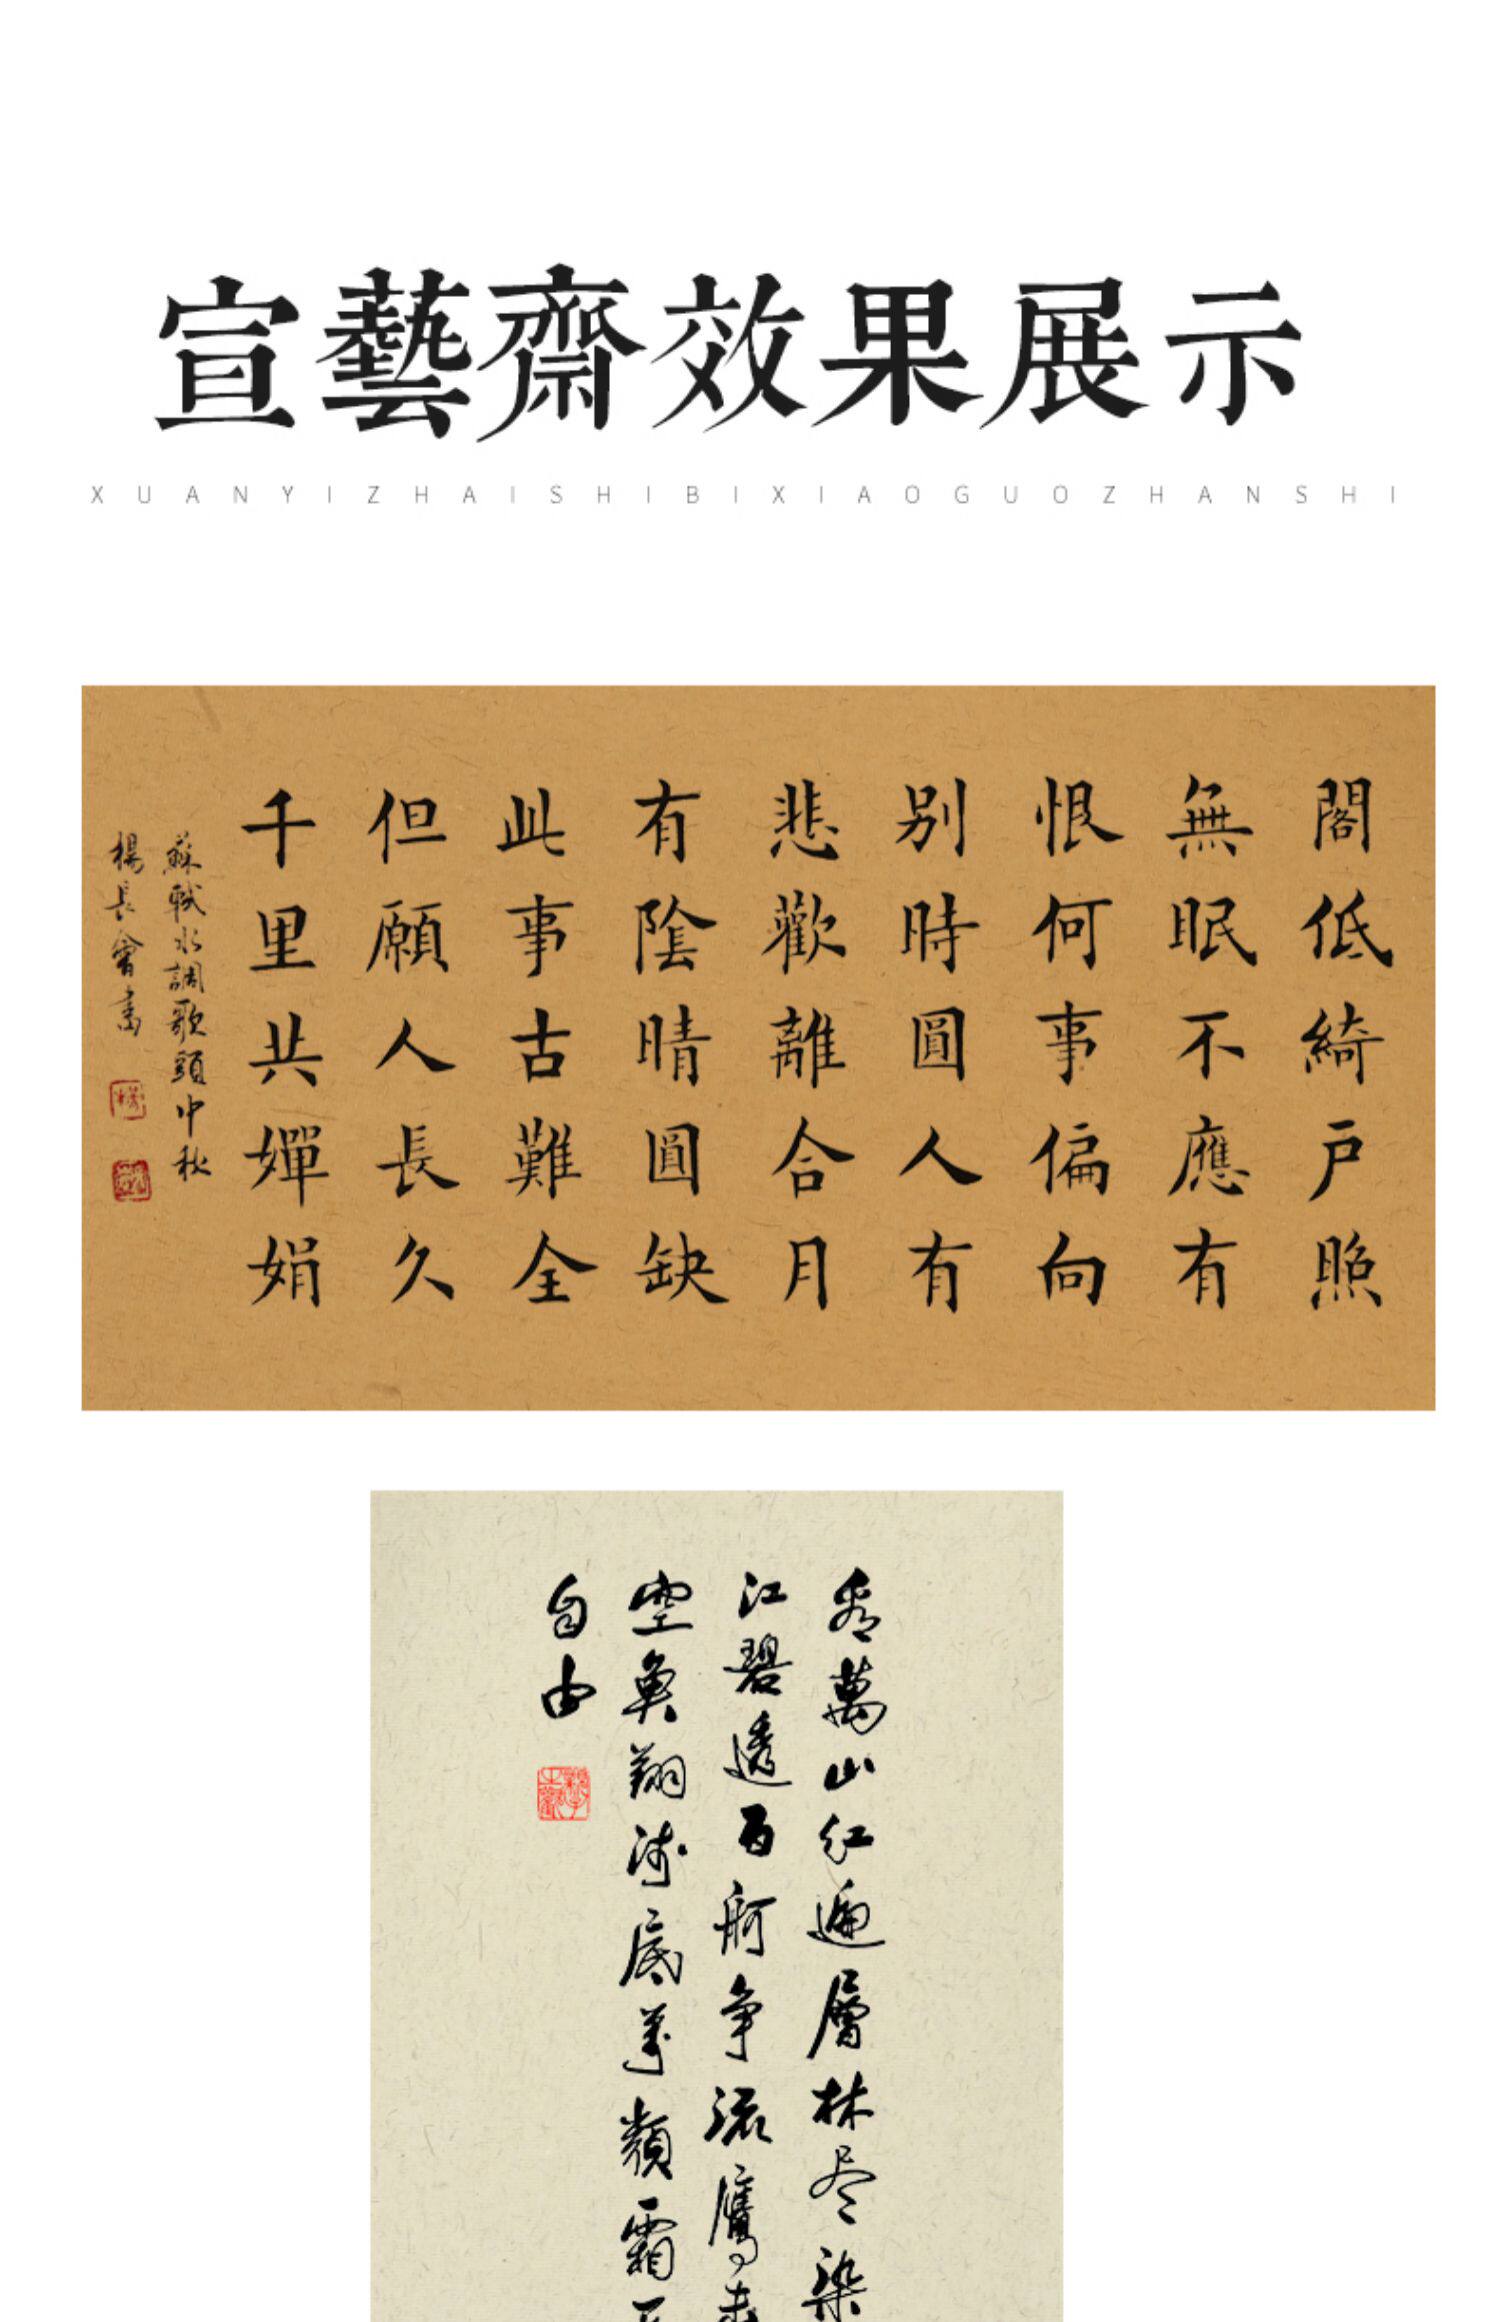 宣藝齋效果展示
XUANYIZHAISHIBIXIAOGUOZHANSHI
閣低綺户照
無眠不應有
恨何事偏向
别時圓人有
悲歡離合月
有陰晴圓缺
此事古難全
但願人長久
千里共嬋娟
蘇軾水調歌頭中秋
楊長會書
看萬山红遍層林尽染
江碧透百舸争流鷹击
空魚翔浅底萬類霜天
自由